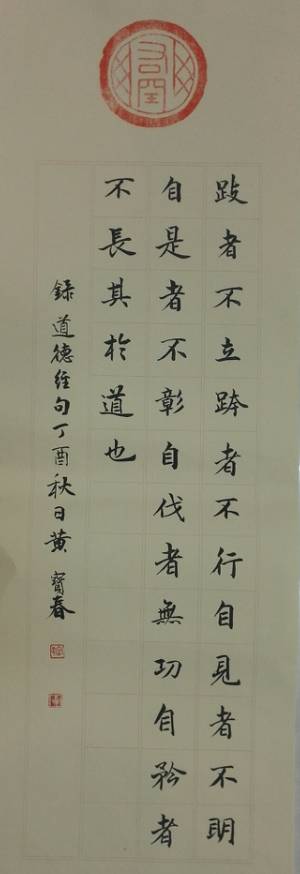 跂者不立跨者不行自見者不明
自是者不彰自伐者無功自矜者
不長其於道也
録道德經句丁酉秋日黄寶春